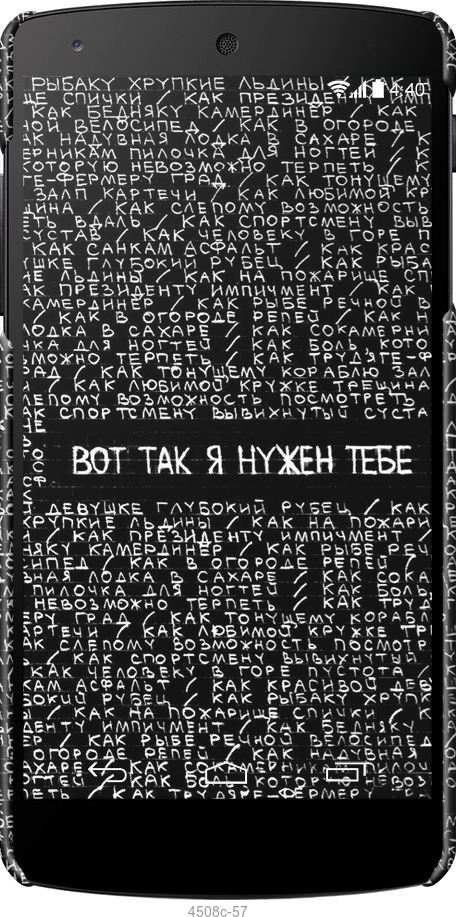 РЫБАКУ ХРУПКИЕ ЛЬДИНЫ / КАК
4:40
ЩЕ СПИЧКИ / КАК ПРЕЗИДЕН
КАК БЕДНЯКУ КАМЕРДИНЕР / КАК
НОЙ ВЕЛОСИПЕД / КАК В ОГОРОДЕ
АК НАДУВНАЯ ЛОДКА В САХАРЕ / К
ЕРНИКАМ ПИЛОЧКА ДЛЯ НОГТЕЙ /
КОТОРУЮ НЕВОЗМОЖНО ТЕРПЕТЬ /
ГЕ-ФЕРМЕРУ / КАК ТОНУЩЕМУ
ЗАЛП КАРТЕЧИ / КАК ЛЮБИМОЙ КР
ЩИНА / КАК СЛЕПОМУ ВОЗМОЖНОСТЬ
ЕТЬ ВДАЛЬ / КАК СПОРТСМЕНУ ВЫВ
СУСТАВ / КАК ЧЕЛОВЕКУ В ГОРЕ П
КАК САНКАМ АСФАЛЬТ / КАК КРАС
ШКЕ ГЛУБОКИЙ РУБЕЦ / КАК РЫБА
ИЕ ЛЬДИНЫ / КАК НА ПОЖАРИЩЕ СП
К ПРЕЗИДЕНТУ ИМПИЧМЕНТ / КАК
КАМЕРДИНЕР / КАК РЫБЕ РЕЧНОЙ В
/ КАК В ОГОРОДЕ РЕПЕЙ / КАК
ЛОДКА В САХАРЕ / КАК СОКАМЕРНИ
КА ДЛЯ НОГТЕЙ / КАК БОЛЬ КОТО
ЗМОЖНО ТЕРПЕТЬ / КАК ТРУДЯГЕ-Ф
АД / КАК ТОНУЩЕМУ КОРАБЛЮ ЗАЛ
/ КАК ЛЮБИМОЙ КРУЖКЕ ТРЕЩИНА
ЛЕПОМУ ВОЗМОЖНОСТЬ ПОСМОТРЕТЬ
АК СПОРТСМЕНУ ВЫВИХНУТЫЙ СУСТА
ВОТ ТАК Я НУЖЕН ТЕБЕ
ДЕВУШКЕ ГЛУБОКИЙ РУБЕЦ / КАК
ХРУПКИЕ ЛЬДИНЫ / КАК НА ПОЖАРИ
/ КАК ПРЕЗИДЕНТУ ИМПИЧМЕНТ /
НЯКУ КАМЕРДИНЕР / КАК РЫБЕ РЕЧ
СИПЕД / КАК В ОГОРОДЕ РЕПЕЙ /
ВНАЯ ЛОДКА В САХАРЕ / КАК СОКА
ПИЛОЧКА ДЛЯ НОГТЕЙ / КАК БОЛЬ
НЕВОЗМОЖНО ТЕРПЕТЬ / КАК ТРУ
РУ ГРАД / КАК ТОНУЩЕМУ КОРАБЛ
АРТЕЧИ / КАК ЛЮБИМОЙ КРУЖКЕ ТР
К СЛЕПОМУ ВОЗМОЖНОСТЬ ПОСМОТР
/ КАК СПОРТСМЕНУ ВЫВИХНУТЫЙ
КАК ЧЕЛОВЕКУ В ГОРЕ ПУСТОТА
КАМ АСФАЛЬТ / КАК КРАСИВОЙ ДЕВ
КИЙ РУБЕЦ / КАК РЫБАКУ ХРУПК
/ КАК НА ПОЖАРИЩЕ СПИЧКИ / К
ДЕНТУ ИМПИЧМЕНТ / КАК БЕДНЯКУ
ЕР / КАК РЫБЕ РЕЧНОЙ ВЕЛОСИПЕ
ОГОРОДЕ РЕПЕЙ / КАК НАДУВНАЯ
САХАРЕ / КАК СОКАМЕРНИКАМ ПИЛОЧ
/ КАК БОЛЬ КОТОРУЮ НЕВОЗ
ПЕТЬ / КАК ТРУДЯГЕ-ФЕРМЕРУ Г
4508c-57